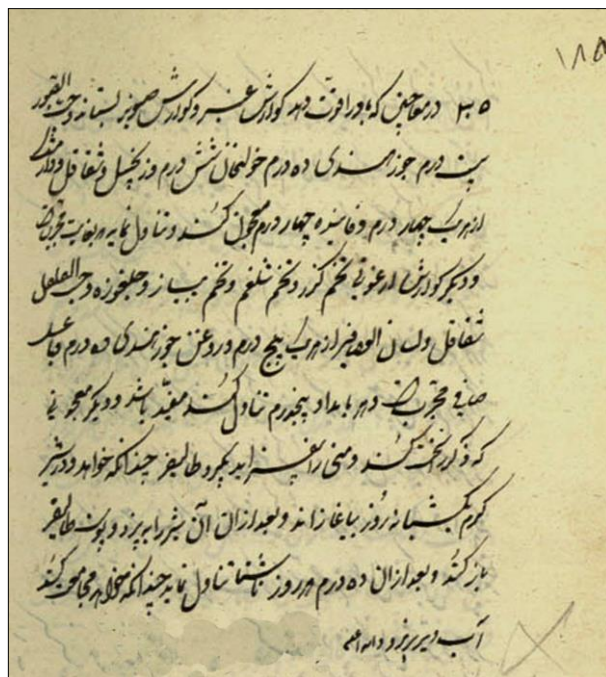 ۱۸۵
۳۵ در معاجین که باه را قوت دهد کوارش عنبر و کوارش صنوبر بستانه و حب
درم جوز هندی ده درم خولنجان شش درم و زنجبیل و شقاقل و دار
از هر یک چهار درم و فانیذ چهار درم معجون کنند و تناول نماید بغایت مجربست
و دیگر کوارش تخم گزر و تخم شلغم و تخم پیاز و چلغوزه و حب الفلفل
شقاقل و لسان العصافیر از هر یک پنج درم و روغن جوز هندی ده درم
صافی هر بامداد پنجدرم تناول کنند مفید باشد و دیگر معجونی
که ذکر را سخت کند و منی را بیفزاید بگیرد چندانکه خواهد و در شیر
گرم یک شبانه روز بیاغازاند و بعد از ان آن شیر را بپزد و
باز کند و بعد از ان ده درم هر روز ناشتا تناول نماید چندانکه خواهد مجامعت کند
آب دیر بریزد والله اعلم